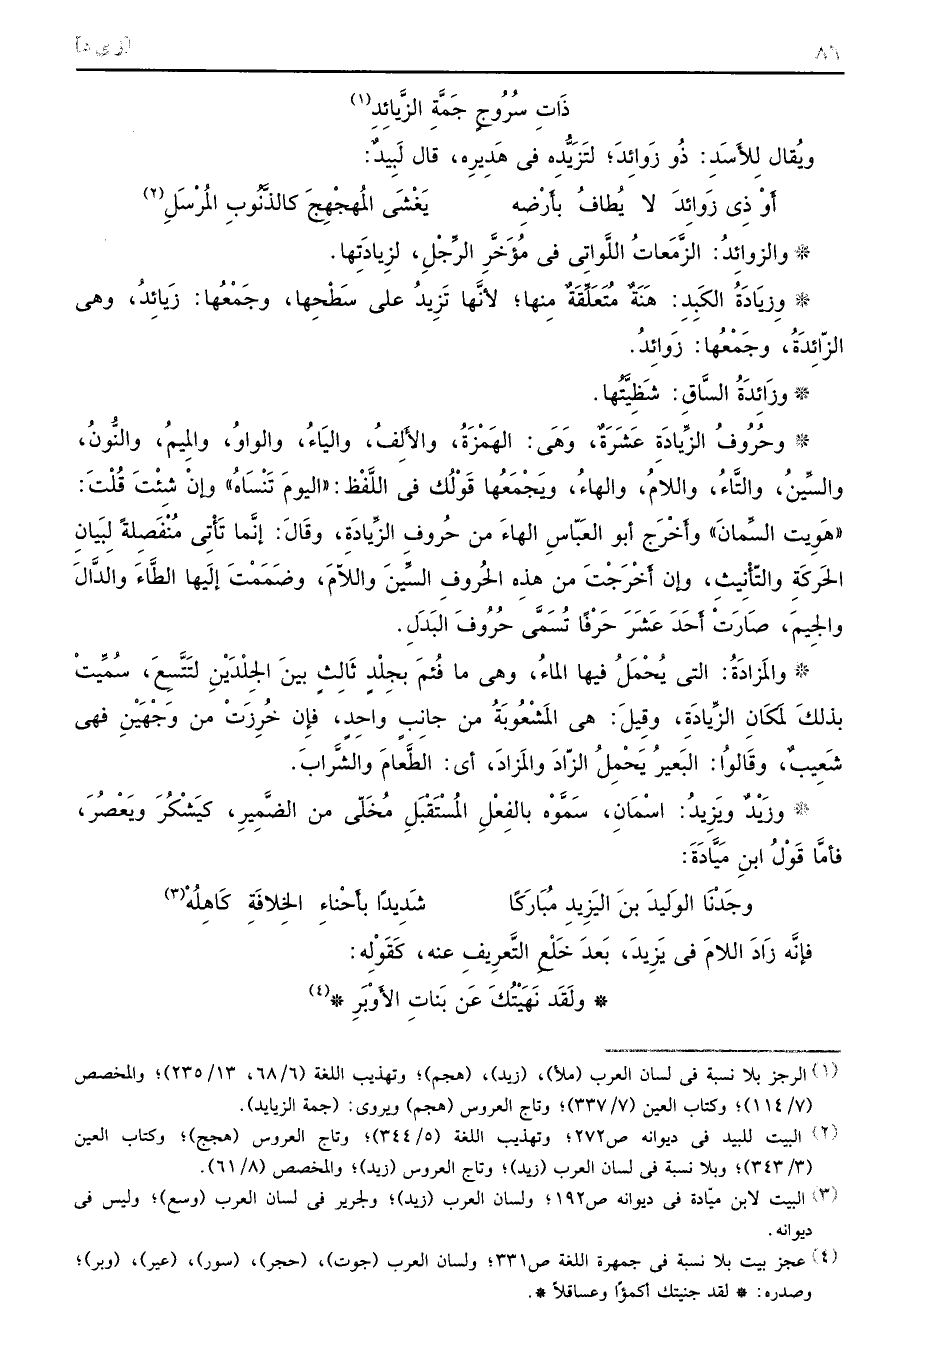 ٨٦
[ز ى د]
ذَاتِ سُرُوجٍ جَمَّةِ الزَّيائِدِ(١)
ويُقال لِلأَسَدِ: ذُو زَوائِدَ؛ لتَزَيُّدِه فى هَدِيرِه، قال لَبِيدٌ:
أوْ ذِى زَوائِدَ لا يُطافُ بأَرْضِه يَغْشَى المُهجْهِجَ كالذَّنُوبِ المُرْسَلِ(٢)
* والزوائدُ: الزَّمَعاتُ اللَّواتِى فى مُؤَخَّرِ الرِّجْلِ، لزِيادَتِها.
* وزِيَادَةُ الكَبِدِ: هَنَةٌ مُتَعَلِّقَةٌ منها؛ لأنَّها تَزِيدُ على سَطْحِها، وجَمْعُها: زَيائِدُ، وهى
الزّائِدَةُ، وجَمْعُها: زَوائِدُ.
* وزَائِدَةُ السَّاقِ: شَظِيَّتُها.
* وحُرُوفُ الزِّيادَةِ عَشَرَةٌ، وَهَىَ: الهَمْزَةُ، والألفُ، والياَءُ، والواوُ، والمِيمُ، والنُّونُ،
والسِّينُ، والتَّاءُ، واللامُ، والهاءُ، ويَجْمَعُها قَوْلُك فى اللَّفْظِ: «اليومَ تَنْساَهُ» وإنْ شئْتَ قُلْتَ:
«هَوِيت السِّمانَ» وأَخْرَج أبو العَبّاسِ الهاءَ من حُروفِ الزِّيادَةِ، وقَالَ: إنَّما تَأْتى مُنْفَصِلةً لبَيانِ
الحَركَةِ والتّأنيثِ، وإن أَخْرَجْتَ من هذه الحُروفِ السِّينَ واللاّمَ، وضَمَمْتَ إليها الطَّاءَ والدَّالَ
والجِيمَ، صارَتْ أَحَدَ عَشَرَ حَرْفًا تُسَمَّى حُرُوفَ البَدَلِ.
* والمَزادَةُ: التى يُحْمَلُ فيها الماءُ، وهى ما فُئِمَ بجِلْدٍ ثالثٍ بينَ الجِلْدَيْنِ لتَتَّسِعَ، سُمِّيتْ
بذلكَ لمَكانِ الزِّيادَةِ، وقِيلَ: هى المَشْعُوبَةُ من جانبٍ واحِدٍ، فإن خُرِزَتْ من وَجْهَيْنِ فهى
شَعِيبٌ، وقَالوا: البَعيرُ يَحْمِلُ الزّادَ والمَزادَ، أى: الطَّعامَ والشَّرابَ.
* وزَيْدٌ ويَزِيدُ: اسْمَانِ، سَمَّوْه بالفِعْلِ المُسْتَقْبَلِ مُخَلّى من الضَّميرِ، كيَشْكُرَ ويَعْصُرَ،
فأمَّا قَوْلُ ابنِ مَيَّادَةَ:
وجَدْنَا الوَلِيدَ بنَ اليَزِيدِ مُبَارَكًا شَدِيدًا بأَحْناءِ الخِلافَةِ كَاهِلُهْ(٣)
فإنَّه زَادَ اللامَ فى يَزِيدَ، بَعدَ خَلْعِ التَّعرِيفِ عنه، كَقَوْلِه:
* ولَقَد نَهَيْتُكَ عَن بَناتِ الأَوْبَرِ *(٤)
(١) الرجز بلا نسبة فى لسان العرب (ملأ)، (زيد)، (هجم)؛ وتهذيب اللغة (٦/ ٦٨، ١٣/ ٢٣٥)؛ والمخصص
(٧/ ١١٤)؛ وكتاب العين (٧/ ٣٣٧)؛ وتاج العروس (هجم) ويروى: (جمة الزيايد).
(٢) البيت للبيد فى ديوانه ص٢٧٢؛ وتهذيب اللغة (٥/ ٣٤٤)؛ وتاج العروس (هجج)؛ وكتاب العين
(٣/ ٣٤٣)؛ وبلا نسبة فى لسان العرب (زيد)؛ وتاج العروس (زيد)؛ والمخصص (٨/ ٦١).
(٣) البيت لابن ميّادة فى ديوانه ص١٩٢؛ ولسان العرب (زيد)؛ ولجرير فى لسان العرب (وسع)؛ وليس فى
ديوانه.
(٤) عجز بيت بلا نسبة فى جمهرة اللغة ص٣٣١؛ ولسان العرب (جوت)، (حجر)، (سور)، (عير)، (وبر)؛
وصدره: * لقد جنيتك أكمؤًا وعساقلاً *.